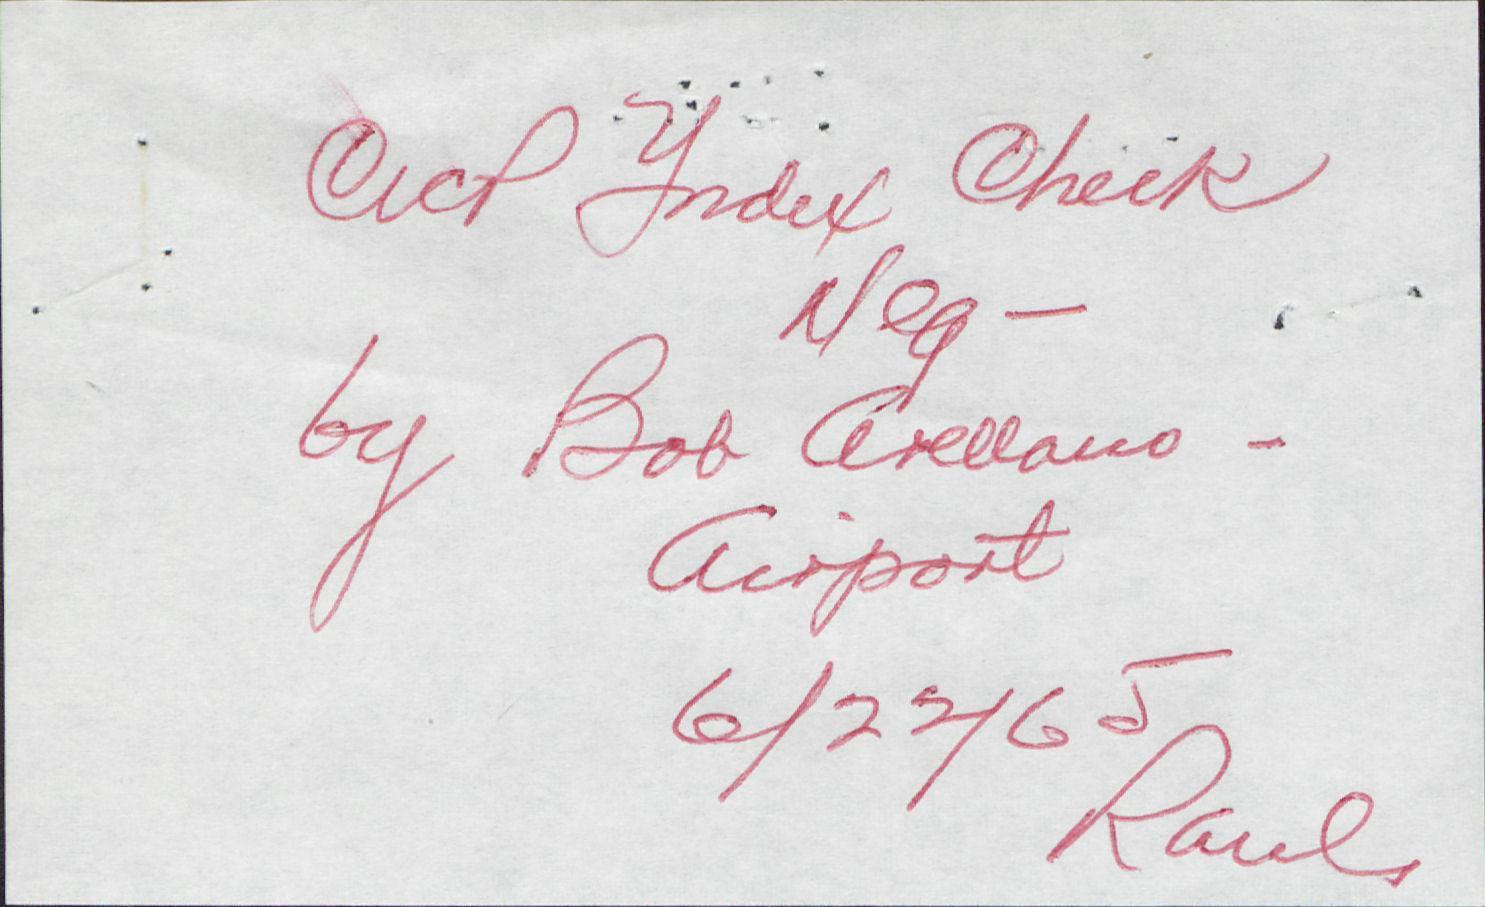 Index Check
Neg -
by Bob Arellano -
Airport
6/22/65
Raul